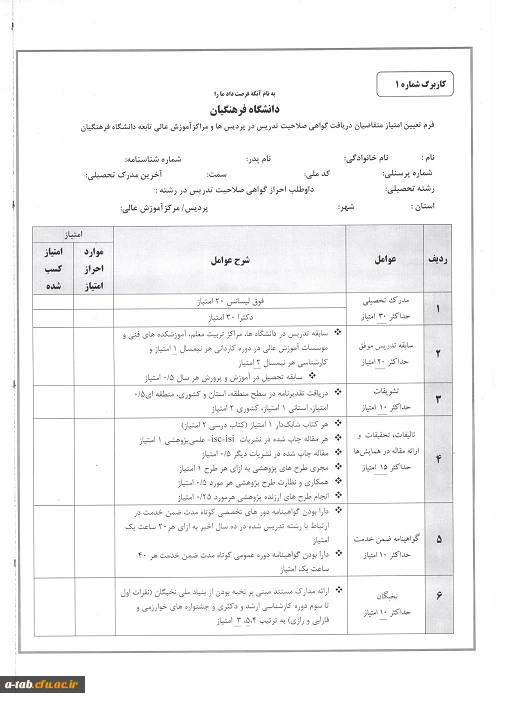 کاربرگ شماره ۱
به نام آنکه فرصت داد ما را
دانشگاه فرهنگیان
فرم تعیین امتیاز متقاضیان دریافت گواهی صلاحیت تدریس در پردیس ها و مراکزآموزش عالی تابعه دانشگاه فرهنگیان
نام : نام خانوادگی: نام پدر: شماره شناسنامه:
شماره پرسنلی: کد ملی: سمت: آخرین مدرک تحصیلی:
رشته تحصیلی: داوطلب احراز گواهی صلاحیت تدریس در رشته :
استان : شهر: پردیس/ مرکزآموزش عالی:
ردیف
عوامل
شرح عوامل
امتیاز
موارد احراز امتیاز
امتیاز کسب شده
۱
مدرک تحصیلی
حداکثر ۳۰ امتیاز
فوق لیسانس ۲۰ امتیاز
دکترا ۳۰ امتیاز
۲
سابقه تدریس موفق
حداکثر ۲۰ امتیاز
سابقه تدریس در دانشگاه ها، مراکز تربیت معلم، آموزشکده های فنی و
موسسات آموزش عالی در دوره کاردانی هر نیمسال ۱ امتیاز و
کارشناسی هر نیمسال ۲ امتیاز
سابقه تحصیل در آموزش و پرورش هر سال ۰/۵ امتیاز
۳
تشویقات
حداکثر ۱۰ امتیاز
دریافت تقدیرنامه در سطح منطقه، استان و کشوری، منطقه ای۰/۵
امتیاز، استانی ۱ امتیاز، کشوری ۲ امتیاز
۴
تالیفات، تحقیقات و
ارائه مقاله در همایش‌ها
حداکثر ۱۵ امتیاز
هر کتاب شابک‌دار ۱ امتیاز (کتاب درسی ۲ امتیاز)
هر مقاله چاپ شده در نشریات isc-isi- علمی‌پژوهشی ۱ امتیاز
مقاله چاپ شده در نشریات دیگر ۰/۵ امتیاز
مجری طرح های پژوهشی به ازای هر طرح ۱ امتیاز
همکاری و نظارت طرح پژوهشی هر مورد ۰/۵ امتیاز
انجام طرح های ارزنده پژوهشی هرمورد ۰/۲۵ امتیاز
۵
گواهینامه ضمن خدمت
حداکثر ۱۰ امتیاز
دارا بودن گواهینامه دور های تخصصی کوتاه مدت ضمن خدمت در
ارتباط با رشته تدریس شده در ده سال اخیر به ازای هر۲۰ ساعت یک
امتیاز
دارا بودن گواهینامه دوره عمومی کوتاه مدت ضمن خدمت هر ۴۰
ساعت یک امتیاز
۶
نخبگان
حداکثر ۱۰ امتیاز
ارائه مدارک مستند مبنی بر نخبه بودن از بنیاد ملی نخبگان (نفرات اول
تا سوم دوره کارشناسی ارشد و دکتری و جشنواره های خوارزمی و
فارابی و رازی) به ترتیب ۵،۴، ۳ امتیاز
a-tab.cfu.ac.ir